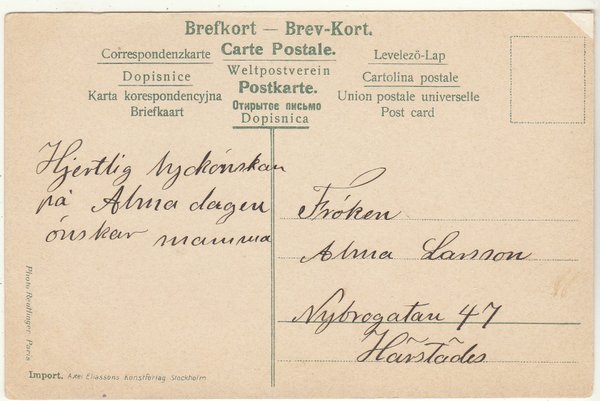 Brefkort — Brev-Kort.
Correspondenzkarte Carte Postale. Levelező-Lap
Dopisnice Weltpostverein Cartolina postale
Karta korespondencyjna Postkarte. Union postale universelle
Briefkaart Открытое письмо Post card
Dopisnica
Hjertlig lyckönskan
på Alma dagen
önskar mamma
Fröken
Alma Larsson
Nybrogatan 47
Härstädes
Photo Reutlinger Paris
Import. Axel Eliassons Konstförlag Stockholm